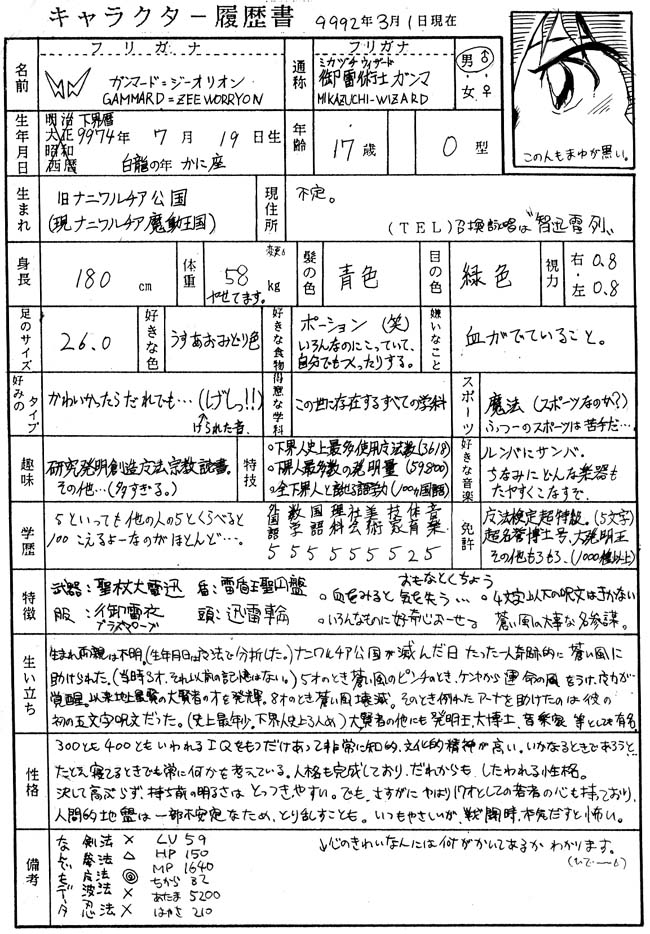 キャラクター履歴書 9992年3月1日現在
フリガナ
名前
ガンマード=ジーオリオン
GAMMARD=ZEEWORRYON
フリガナ
通称
ミカヅチ ウィザード
御雷術士ガンマ
MIKAZUCHI-WIZARD
男♂
・
女♀
このへんもまゆが黒い。
生年月日
明治 下界暦
大正
昭和
西暦
9974年 7月 19日生
白龍の年 かに座
年齢
17歳
O型
生まれ
旧ナニワルチア公国
(現ナニワルチア魔動王国)
現住所
不定。
(TEL)召換詠唱は"智迅雷列"
身長
180 cm
体重
58 kg
やせてます。
髪の色
青色
目の色
緑色
視力
右 0.8
・
左 0.8
足のサイズ
26.0
好きな色
うすあおみどり色
好きな食物
ポーション(笑)
いろんなのにこっていて、
自分でもつくったりする。
嫌いなこと
血がでていること。
好みのタイプ
かわいかったらだれでも…(げしっ!!)
けられた音
得意な学科
この世に存在するすべての学科
スポーツ
魔法(スポーツなのか?)
ふつーのスポーツは苦手だ…
趣味
研究発明創造魔法宗教読書。
その他…(多すぎる。)
特技
○下界人史上最多使用魔法数(3618)
○下界人最多数の発明量(59800)
○全下界人と話せる語学力(100ヵ国語)
好きな音楽
ルンバにサンバ。
ちなみにどんな楽器も
たやすくこなすで。
学歴
5といっても他の人の5とくらべると
100こえるよーなのがほとんど…。
外国語 数学 国語 理科 社会 美術 技家 体育 音楽
5 5 5 5 5 5 5 2 5
免許
魔法検定超特級。(5文字)
超名誉博士号、大発明王
その他もろもろ、(1000種以上)
特徴
武器:聖杖大雷迅 盾:雷盾王聖円盤
服:御雷衣 頭:迅雷輪
プラズマローブ
おもなとくちょう
○血をみると気を失う…
○4文字以下の呪文はきかない
○いろんなものに好奇心おーせい
蒼い風の大事な名参謀。
生い立ち
生まれ両親は不明。(生年月日は魔法で分析した。)ナニワルチア公国が滅んだ日たった一人奇跡的に蒼い風に
助けられた。(当時3才、それ以前の記憶はない。)5才のとき蒼い風のピンチのとき、ケントから運命の風をうけ、魔力が
覚醒。以来地最賢の大賢者の才を発揮。8才のとき蒼い風壊滅。そのとき倒れたアーナを助けたのは彼の
初の五文字呪文だった。(史上最年少。下界人史上3人め)大賢者の他にも発明王、大博士、音楽家等としても有名。
性格
300とも400ともいわれるIQをもつだけあって非常に知的、文化的精神が高い。いかなるときであろうと
たとえ寝てるときでも常に何かを考えている。人格も完成しており、だれからもしたわれる性格。
決して高ぶらず、持ち前の明るさはとっつきやすい。でも、さすがにやはり17才としての若者の心も持っており、
人間的地盤は一部不安定なため、とり乱すことも。いつもやさしいが、戦闘時、本気だすと怖い。
備考
なんでもデータ
剣法 × LV 59
拳法 △ HP 150
魔法 ◎ MP 1640
波法 × ちから 32
忍法 × あたま 5200
はやさ 210
↓心のきれいな人には何がかいてあるかわかります。